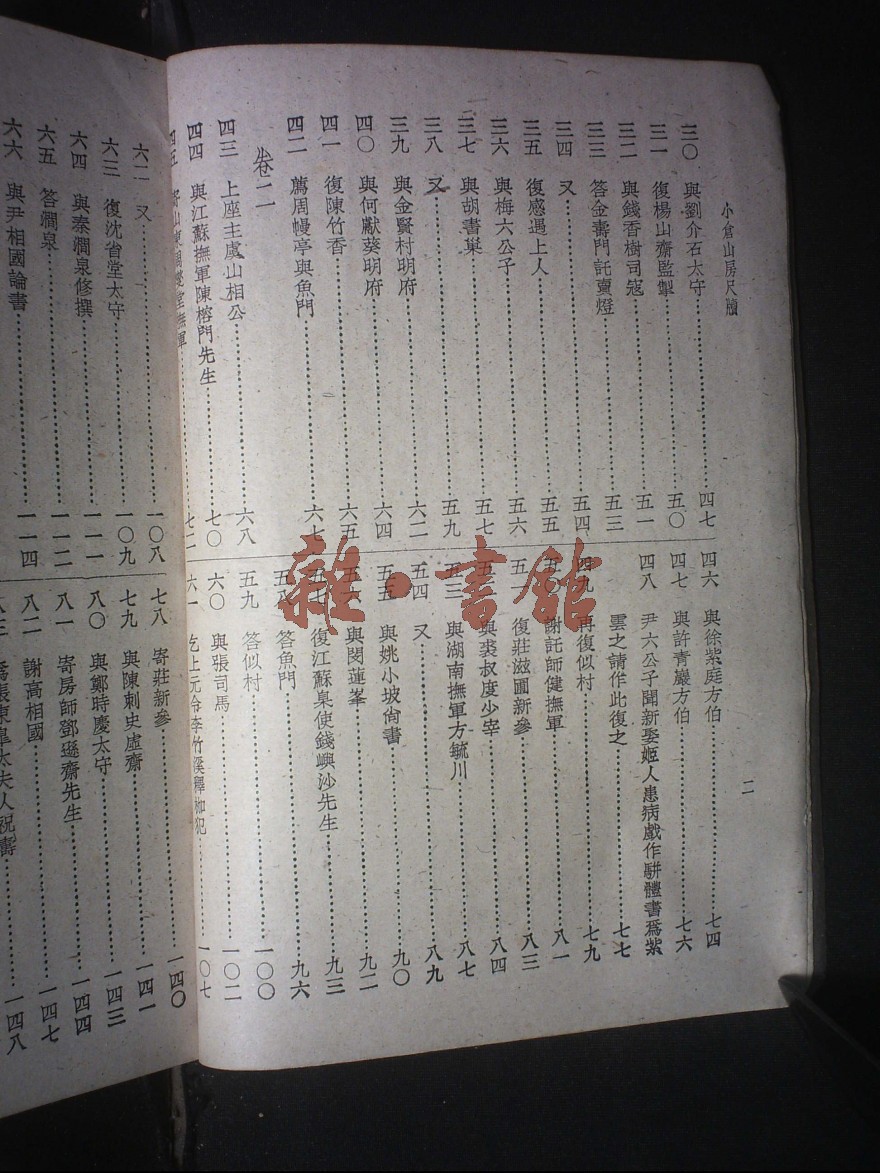 小倉山房尺牘
二
三〇 與劉介石太守 四七
三一 復楊山齋監掣 五〇
三二 與錢香樹司寇 五一
三三 答金壽門託賣燈 五三
三四 又 五四
三五 復感遇上人 五五
三六 與梅六公子 五六
三七 與胡書巢 五七
三八 又 五九
三九 與金賢村明府 六二
四〇 與何獻葵明府 六四
四一 復陳竹香 六五
四二 薦周幔亭與魚門 六七
卷二
四三 上座主虞山相公 六八
四四 與江蘇撫軍陳榕門先生 七〇
四五 七二
四六 與徐紫庭方伯 七四
四七 與許青巖方伯 七六
四八 尹六公子聞新娶姬人患病戲作駢體書爲紫
雲之請作此復之 七七
四九 再復似村 七九
五〇 謝託師健撫軍 八一
五一 復莊滋圃新參 八三
與裘叔度少宰 八四
五三 與湖南撫軍方毓川 八七
五四 又 八九
五五 與姚小坡尙書 九〇
五六 與閔蓮峯 九二
五七 復江蘇臬使錢嶼沙先生 九三
五八 答魚門 九六
五九 答似村 一〇〇
六〇 與張司馬 一〇二
六一 乞上元令李竹溪釋枷犯 一〇七
六二 又 一〇八
六三 復沈省堂太守 一〇九
六四 與秦澗泉修撰 一一一
六五 答澗泉 一一二
六六 與尹相國論書 一一四
七八 寄莊新參 一四〇
七九 與陳刺史虛齋 一四一
八〇 與鄭時慶太守 一四三
八一 寄房師鄧遜齋先生 一四四
八二 謝高相國 一四七
八三 爲張東皐太夫人祝壽 一四八
雜·書館